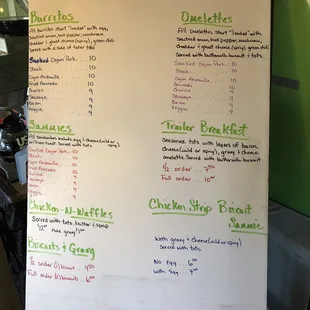 Burritos
All burritos start "loaded" with eggs,
smoked onion, bell pepper, mushroom,
cheddar & goat cheese (spicy), green chili
Served with a side of tater tots
Smoked Cajun Pork 10
Steak 10
Cajun Andouille 10
Fried Avocado 10
Chorizo 9
Sausage 9
Bacon 9
Veggie 9
Sammies
Smoked Cajun Pork 10
Steak 10
Cajun Andouille 10
Fried Avocado 10
Chorizo 9
Sausage 9
Bacon 9
Veggie
Chicken-N-Waffles
Served with tots, butter & syrup
Add gravy
Biscuits & Gravy
1/2 order (1) biscuit
Full order (2) biscuits
Omelettes
All omelettes start "loaded" with
smoked onion, bell pepper, mushroom,
cheddar & goat cheese (spicy), green chili
Served with buttermilk biscuit & tots
Smoked Cajun Pork 10
Steak 10
Cajun Andouille 10
Fried Avocado 10
Chorizo 9
Sausage 9
Bacon 9
Veggie 9
Trailer Breakfast
Seasoned tots with layers of bacon,
cheese (cold or spicy), gravy & cheese
omelette. Served with buttermilk biscuit
1/2 order
Full order
Chicken Strip Biscuit
Sammie
with gravy & cheese (cold or spicy)
Served with tots
No egg
With egg